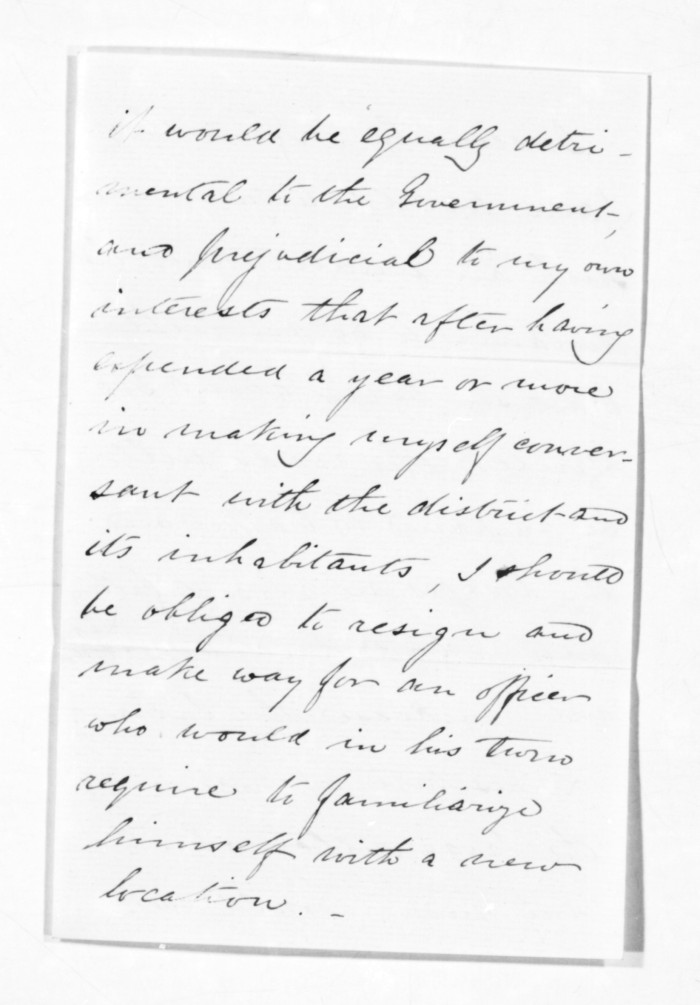 it would be equally detri-
mental to the Government,
and prejudicial to my own
interests that after having
expended a year or more
in making myself conver-
sant with the district and
its inhabitants, I should
be obliged to resign and
make way for an officer
who would in his turn
require to familiarize
himself with a new
location. -